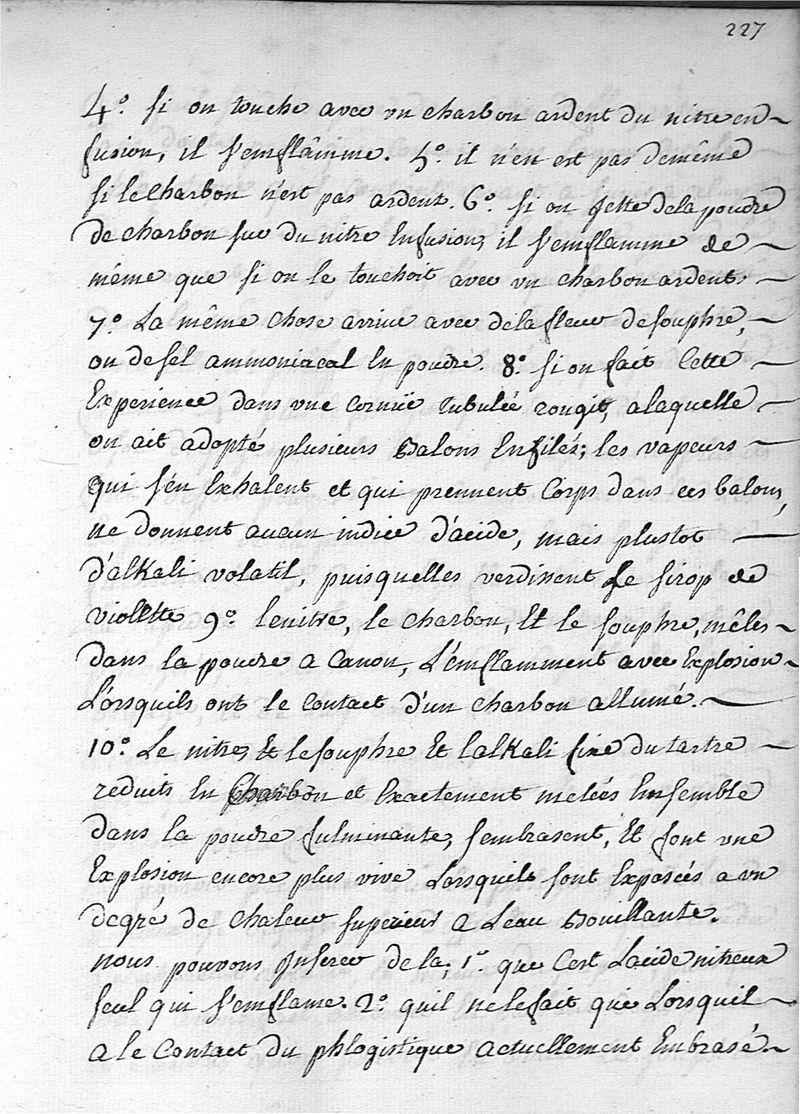 227
4.° si on touche avec un charbon ardent du nitre en
fusion, il s'emflâmme. 5.° il n'en est pas demême
si le charbon n'est pas ardent. 6.° si on jette dela poudre
de charbon sur du nitre En fusion, il s'emflamme de
même que si on le touchoit avec un charbon ardent.
7.° La même chose arrive avec dela fleur de souphre,
ou de sel ammoniacal En poudre. 8.° si on fait Cette
Experience dans une Cornüe tubulée rougit, a laquelle
on ait adopté plusieurs Balons Enfilés; les vapeurs
qui s'en Exhalent et qui prennent Corps dans ces balons,
ne donnent aucun indice d'acide, mais plustot
d'alkali volatil, puisquelles verdissent Le sirop de
violette 9.° lenitre, le charbon, Et le souphre, mêles
dans la poudre a Canon, s'emflamment avec Explosion
Lorsquils ont le Contact d'un charbon allumé.
10.° Le nitre, Et le souphre Et lalkali fixe du tartre
reduits En Charbon et Exactement melées Ensemble
dans la poudre fulminante, sembrasent, Et font une
Explosion encore plus vive Lorsquils sont Exposés a un
degré de Chaleur superieur a Leau Bouillante.
nous pouvons Inferer de la; 1.° que C'est Lacide nitreux
seul qui s'emflame. 2.° quil ne le fait que Lorsquil
a le Contact du phlogistique actuellement Embrasé.